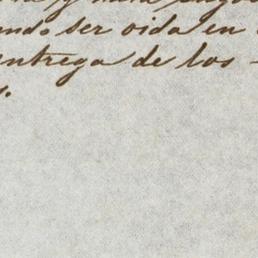 y
ando ser oida en
entrega de los -
s.